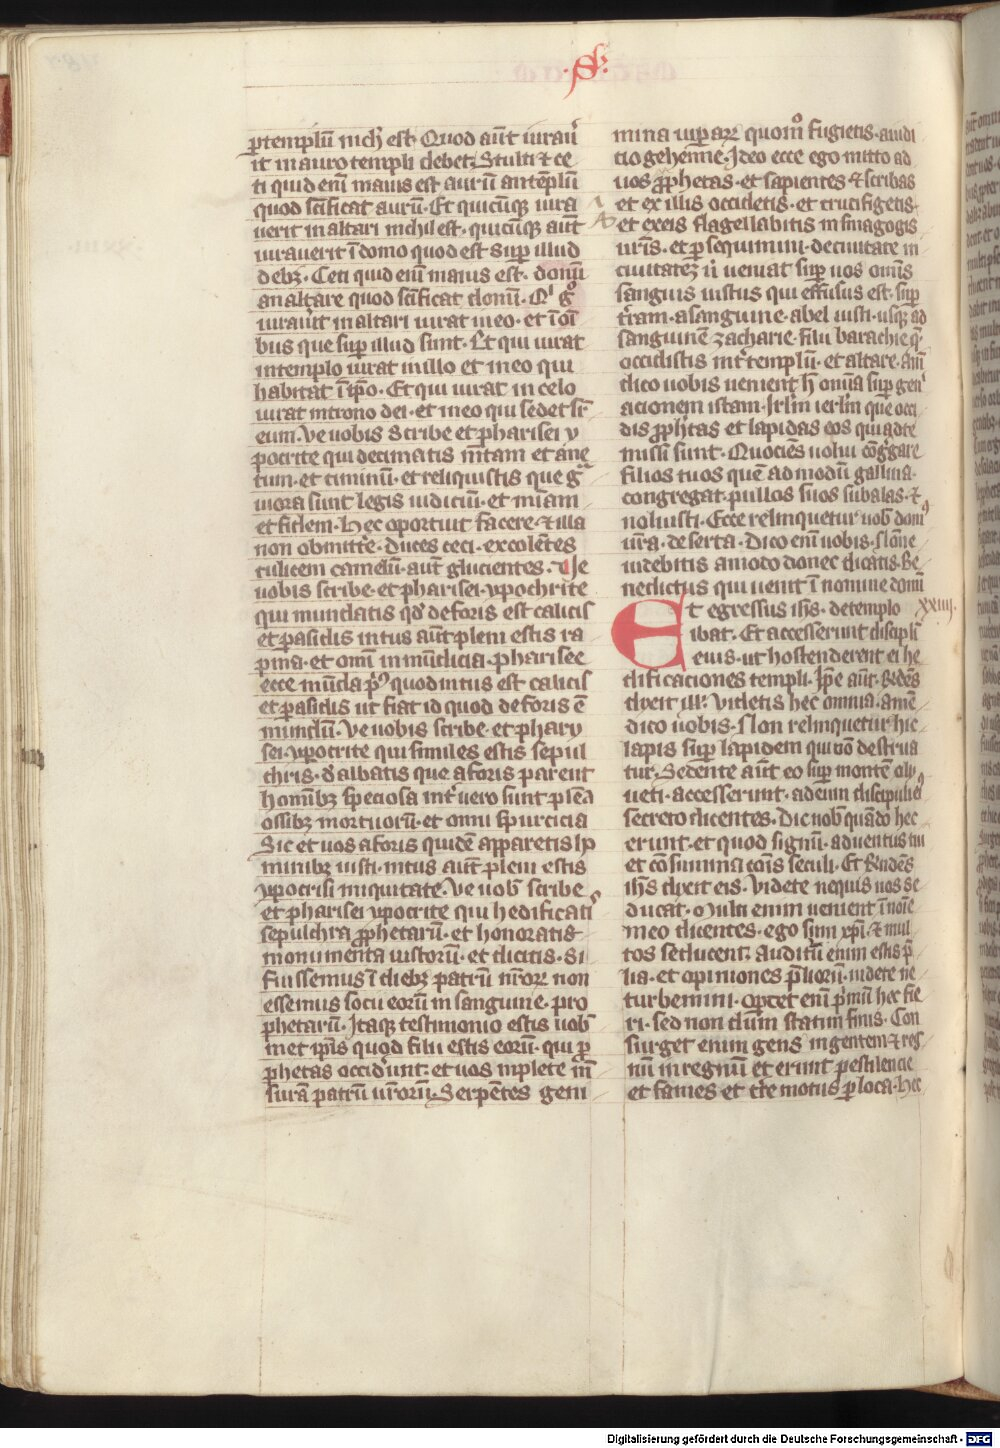 .S.
ꝑ templū nich̄ est. Quod aūt iurau̾
it in auro templi debet; Stulti ⁊ ce
ti quid eni̅ maius est aurū an tēplū
quod sc̄ificat aurū. Et quicūqꝫ iura
uerit in altari nichil est. quicūqꝫ aūt
iurauerit ī domo quod est sup̱ illud
debꝫ. Ceti quid eni̅ maius est. donū
an altare quod sc̄ificat donū. Qi gͦ
iurau̾it in altari iurat in eo. et ī oi̅
bus que sup̱ illud sunt. Et qui iurat
in templo iurat in illo et in eo qui
habitat ī ip̄o. Et qui iurat in celo
iurat in trono dei. et in eo qui sedet sr̄
eum. Ve uobis Scribe et pharisei y
pocrite qui decimatis m̄tam et ane
tum. et ciminū. et reliquistis que gͣ
uiora sunt legis iudiciū. et mi̅am
et fidem. Hec oportuit facere ⁊ illa
non obmitte̾. Duces ceci. excolētes
culicem camelū. aūt glucientes. Ue
uobis scribe. et pharisei. ypochrite
qui mundatis qd̾ deforis est calicis
et ꝑasidis intus aūt pleni estis ra
pina. et omi̅ inmūdicia. pharisee
cece mūda p̾ꝰ quod intus est calicis
et ꝑasidis ut fiat id quod deforis ē
mundū. Ve uobis scribe. et phary
sei. ypocrite qui similes estis sepul
chris. d̾albatis que aforis parent
homībꝫ speciosa int̾ uero sunt plēa
ossibꝫ mortuorū. et omni spurcicia
Sic et uos aforis quidē apparetis ho
minibꝫ iusti. intus aūt pleni estis
ypocrisi iniquitate. Ve uob̄ scribe
et pharisei ypocrite qui hedificatꝰ
sepulchra ꝓphetarū. et honoratis
monumenta iustorū. et dicitis. Si
fuissemus ī diebꝫ patrū nr̄oꝝ non
essemus socii eorū in sanguine. pro
phetarū. Itaqꝫ testimonio estis uob̄
met ip̄is quod filii estis eorū. qui ꝓ
phetas occid̾unt. et uos inplete m̄
suram patrū ur̄orū. Serpētes geni
mina uiꝑaꝝ quomͦ fugietis. a iudi
tio gehenne. Ideo ecce ego mitto ad
uos ꝓphetas. et sapientes ⁊ scribas
et ex illis occidetis. et crucifigetis.
et ex eis flagellabitis in sinagogis
ur̄is. et ꝑsequimini. de ciuitate in
ciuitateꝫ ū ueniat sup̱ uos omīs
sanguis iustus qui effusus est. sup̱
t̾ram. a sanguine. abel iusti. usqꝫ ad
sanguinē zacharie. filii barachie qͥ
occidistis int̾ templū. et altare. Am̄
dico uobis uenient h̄ omīa sup̱ gen̾
acionem istam. Irl̄m ierl̄m que occi
dis ꝓph̄tas et lapidas eos qui ad te
missi sunt. Quociēs uolui cōg̾gare
filios tuos quē ad modū gallina.
congregat. pullos suos sub alas. ⁊
noluisti. Ecce relinquetur uob̄ domꝰ
ur̄a. deserta. Dico eni̅ uobis. Nōne
uidebitis amodo donec dicatis. Be
nedictus qui uenit ī nomine domi̅
Et egressus ih̄s. de templo
xxiiij.
ibat. Et accesserunt discipli
eius. ut hostenderent ei he
dificaciones templi. Ip̄e aūt. Rn̄dēs
dixit ill̾. Videtis hec omnia. amē
dico uobis. Non relinquetur hic
lapis sup̱ lapidem qui nō destrua
tur. Sedente aūt eo sup̱ montē oli
ueti. accesserunt. ad eum discipuli eiꝰ
secreto dicentes. Dic uob̄ quādo hec
erunt. et quod signū. aduentus tui
et cōsumma cōis seculi. Et Rn̄dēs
ih̄s dixit eis. Videte nequis uos se
ducat. Multi enim uenient ī noi̅e
meo dicentes. ego sum xp̄i. ⁊ mul
tos seducent. Auditū enim estis p̄
lia. et opiniones p̄liorū. uidete ne
turbemini. oportet eni̅ p̾mū hec fie
ri. sed non dum statim finis. Con
surget enim gens in gentem ⁊ reg
nū in regnū et erunt pestilencie
et fames et t̾re motus ꝑ loca. Hec
Digitalisierung gefördert durch die Deutsche Forschungsgemeinschaft - DFG